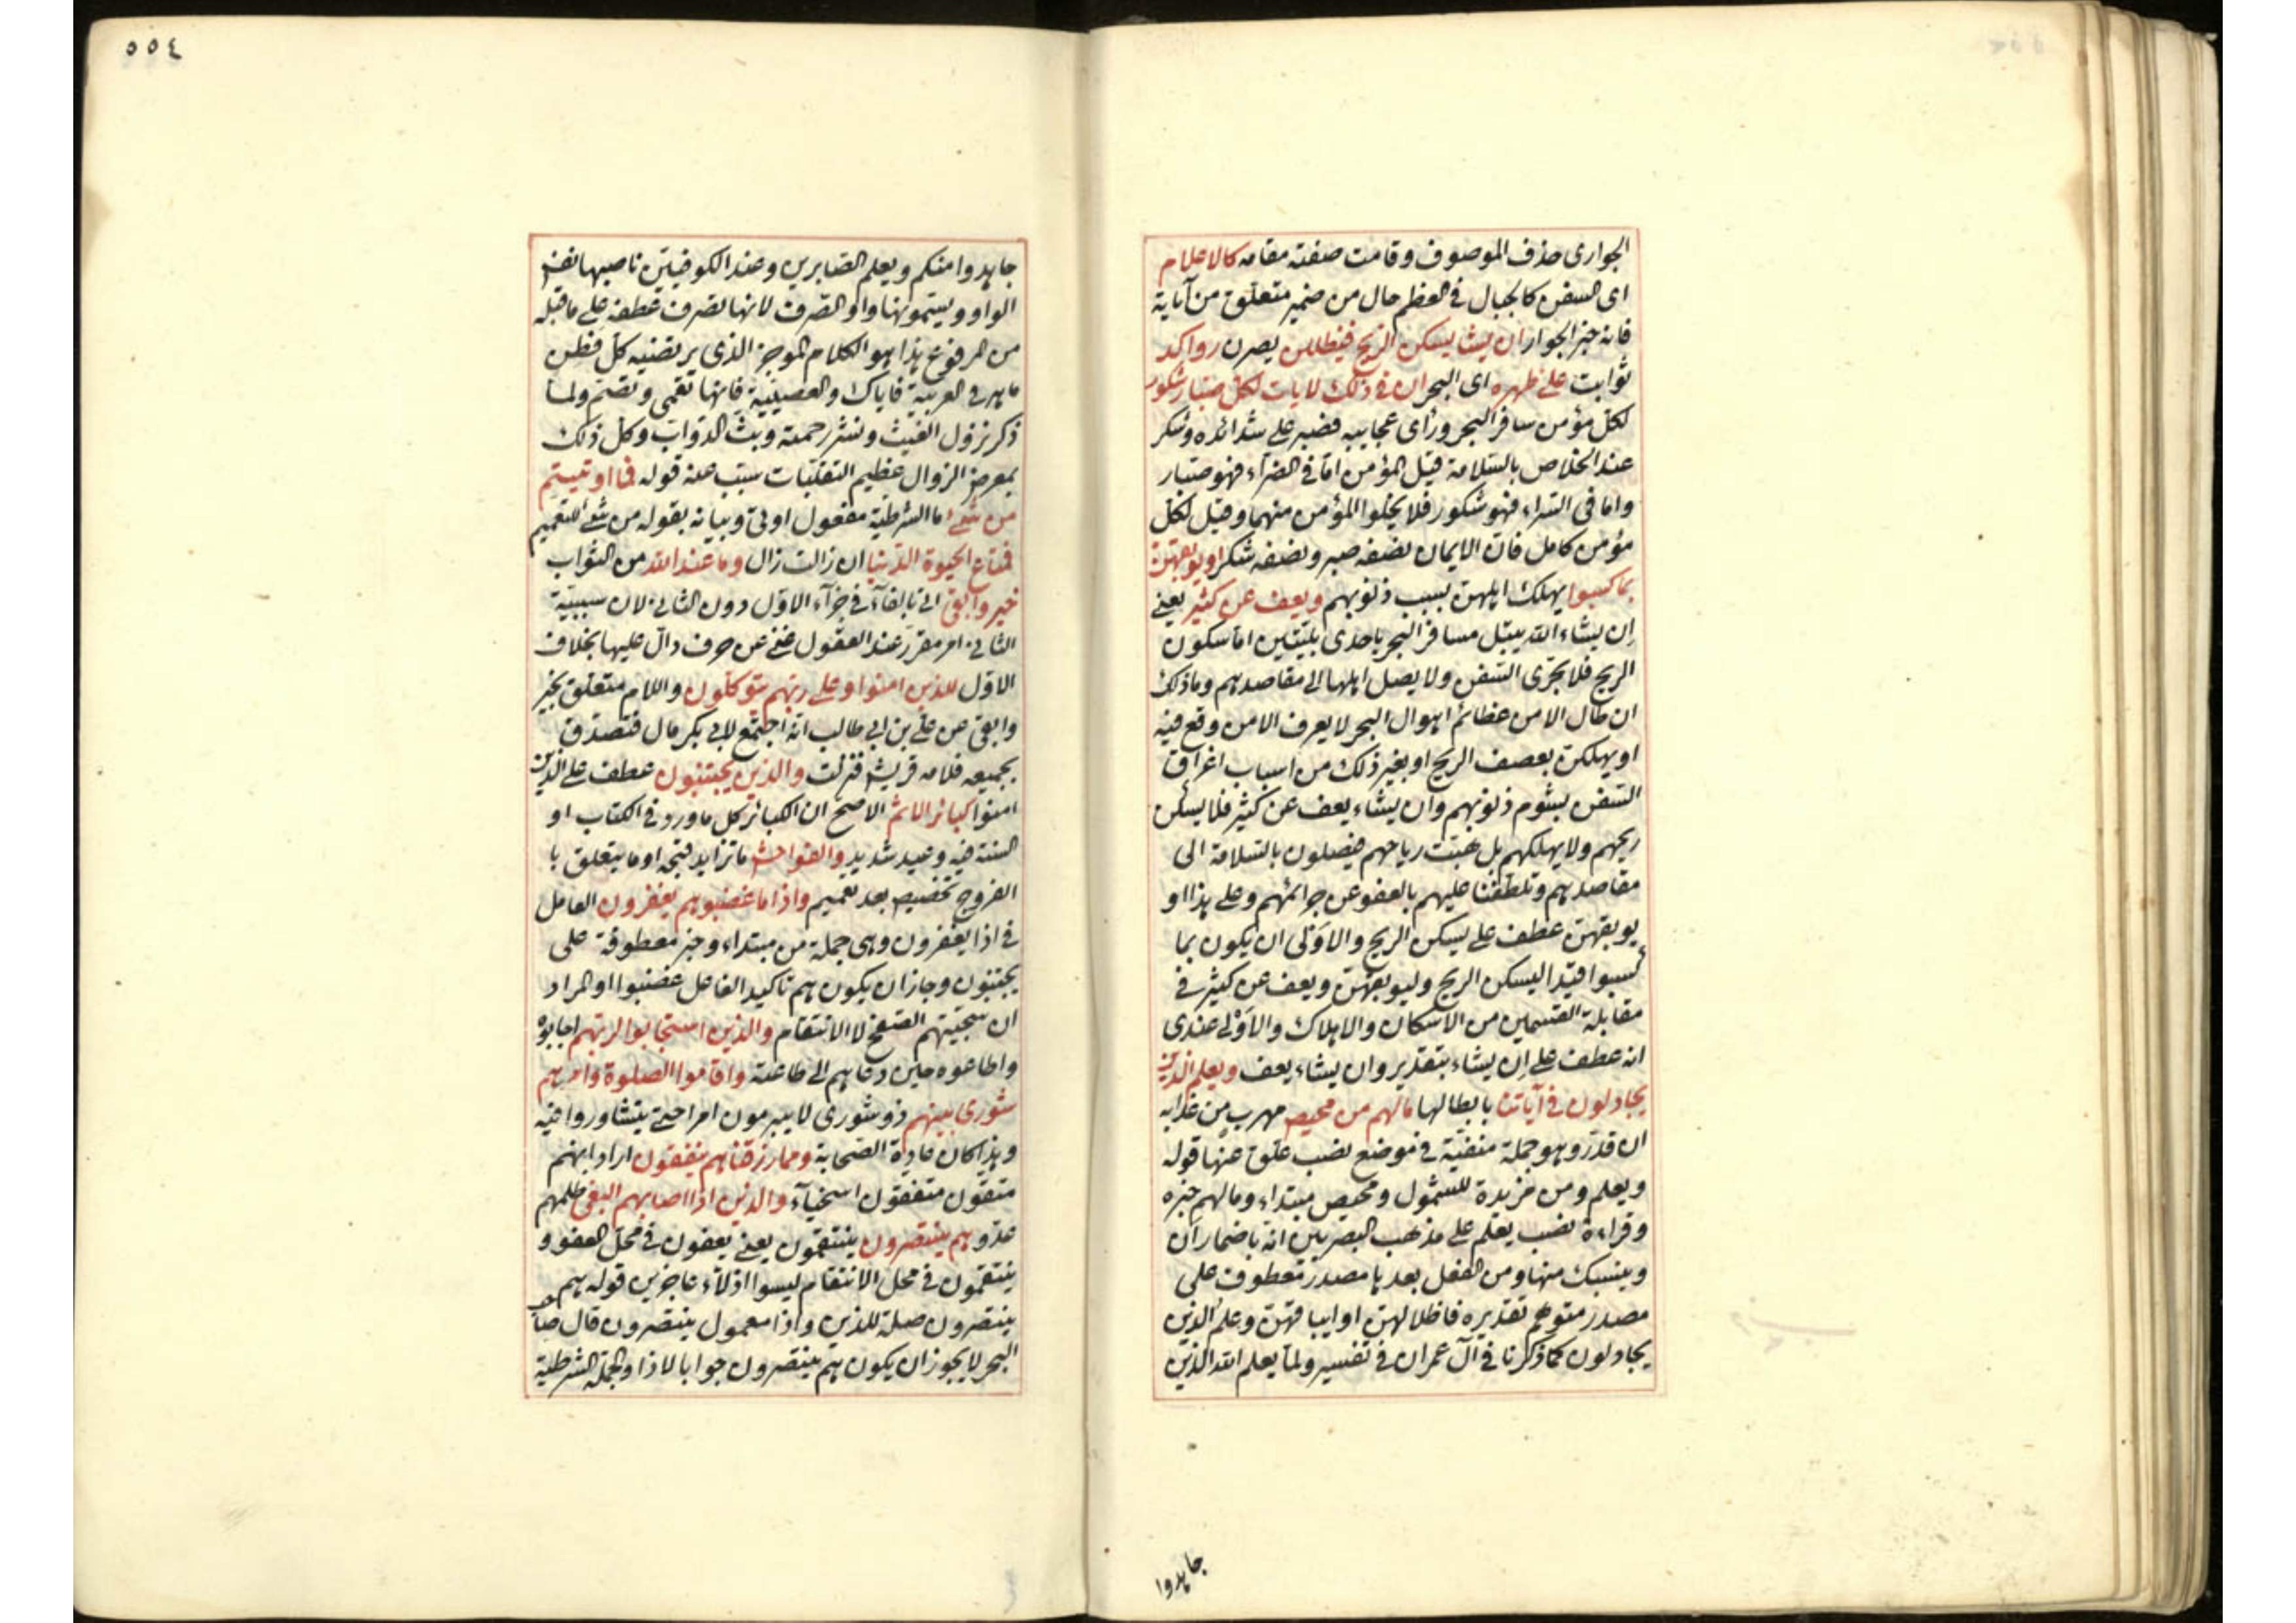 الجوارى حذف الموصوف وقامت صفته مقامه كالاعلام
اى السفن كالجبال فى العظم حال من ضمير متعلق من آياته
فانه خبر الجوار ان يشأ يسكن الريح فيظللن يصرن رواكد
ثوابت على ظهره اى البحر ان فى ذلك لايات لكل صبار شكور
لكل مؤمن سافر البحر ورأى عجايبه فصبر على شدائده وشكر
عند الخلاص بالسلامة قيل المؤمن اما فى الضراء فهو صبار
واما فى السراء فهو شكور فلا يخلوا المؤمن منهما وقيل لكل
مؤمن كامل فان الايمان نصفه صبر ونصفه شكر او يوبقهن
بما كسبوا يهلك اهلهن بسبب ذنوبهم ويعف عن كثير يعنى
ان يشاء الله يبتل مسافر البحر باحدى بليتين اما سكون
الريح فلا تجرى السفن ولا يصل اهلها الى مقاصدهم وما ذلك
ان طال الا من عظائم اهوال البحر لا يعرف الا من وقع فيه
او يهلكن بعصف الريح او بغير ذلك من اسباب اغراق
السفن بشوم ذنوبهم وان يشاء يعف عن كثير فلا يسكن
ريحهم ولا يهلكهم بل هبت رياحهم فيصلون بالسلامة الى
مقاصدهم وتلطفنا عليهم بالعفو عن جرائمهم وعلى هذا او
يوبقهن عطف على يسكن الريح والاولى ان يكون بما
كسبوا قيدا ليسكن الريح وليوبقهن ويعف عن كثير فى
مقابلة القسمين من الاسكان والاهلاك والاولى عندى
انه عطف على ان يشاء بتقدير وان يشاء يعف ويعلم الذين
يجادلون فى آياتنا بابطالها مالهم من محيص مهرب من عذابه
ان قدر وهو جملة منفية فى موضع نصب علق عنها قوله
ويعلم ومن مزيدة للشمول ومحيص مبتداء ومالهم خبره
وقراءة نصب يعلم على مذهب البصريين انه باضمار ان
وينسبك منها ومن الفعل بعدها مصدر معطوف على
مصدر متوهم تقديره فاظلالهن او ايباقهن وعلم الذين
يجادلون كما ذكرنا فى آل عمران فى تفسير ولما يعلم الله الذين
جاهدوا
٥٥٤
جاهدوا منكم ويعلم الصابرين وعند الكوفيين ناصبها نفس
الواو ويسمونها واو الصرف لانها تصرف عطفه على ما قبله
من المرفوع هذا هو الكلام الموجز الذى يرتضيه كل فطن
ماهر فى العربية فاياك والعصبية فانها تعمى وتصم ولما
ذكر نزول الغيث ونشر رحمته وبث الدواب وكل ذلك
بمعرض الزوال عظيم التقلبات سبب عنه قوله فما اوتيتم
من شئ ما الشرطية مفعول اوتى وبيانه بقوله من شئ للتعميم
فمتاع الحيوة الدنيا ان زالت زال وما عند الله من الثواب
خير وابقى اتى بالفاء فى جزآء الاول دون الثانى لان سببية
الثانى امر مقرر عند العقول غنى عن حرف دال عليها بخلاف
الاول للذين امنوا وعلى ربهم يتوكلون واللام متعلق بخير
وابقى عن على بن ابى طالب انه اجتمع لابى بكر مال فتصدق
بجميعه فلامه قريش فنزلت والذين يجتنبون عطف على الذين
امنوا كبائر الاثم الاصح ان الكبائر كل ما ورد فى الكتاب او
السنة فيه وعيد شديد والفواحش ما تزايد قبحه او ما يتعلق با
الفروج تخصيص بعد تعميم واذا ما غضبوا هم يغفرون العامل
فى اذا يغفرون وهى جملة من مبتداء وخبر معطوفة على
يجتنبون وجاز ان يكون هم تاكيد الفاعل غضبوا او المراد
ان سجيتهم الصفح لا الانتقام والذين استجابوا لربهم اجابوه
واطاعوه حين دعاهم الى طاعته واقاموا الصلوة وامرهم
شورى بينهم ذو شورى لا يبرمون امرا حتى يتشاوروا فيه
وهذا كان عادة الصحابة ومما رزقناهم ينفقون اراد انهم
متقون متفقون اسخيآء والذين اذا اصابهم البغى ظلمهم
عدو هم ينتصرون ينتقمون يعنى يعفون فى محل العفو و
ينتقمون فى محل الانتقام ليسوا اذلآء عاجزين قوله هم
ينتصرون صلة للذين واذا معمول ينتصرون قال صاحب
البحر لا يجوز ان يكون هم ينتصرون جوابا لاذا والجملة الشرطية